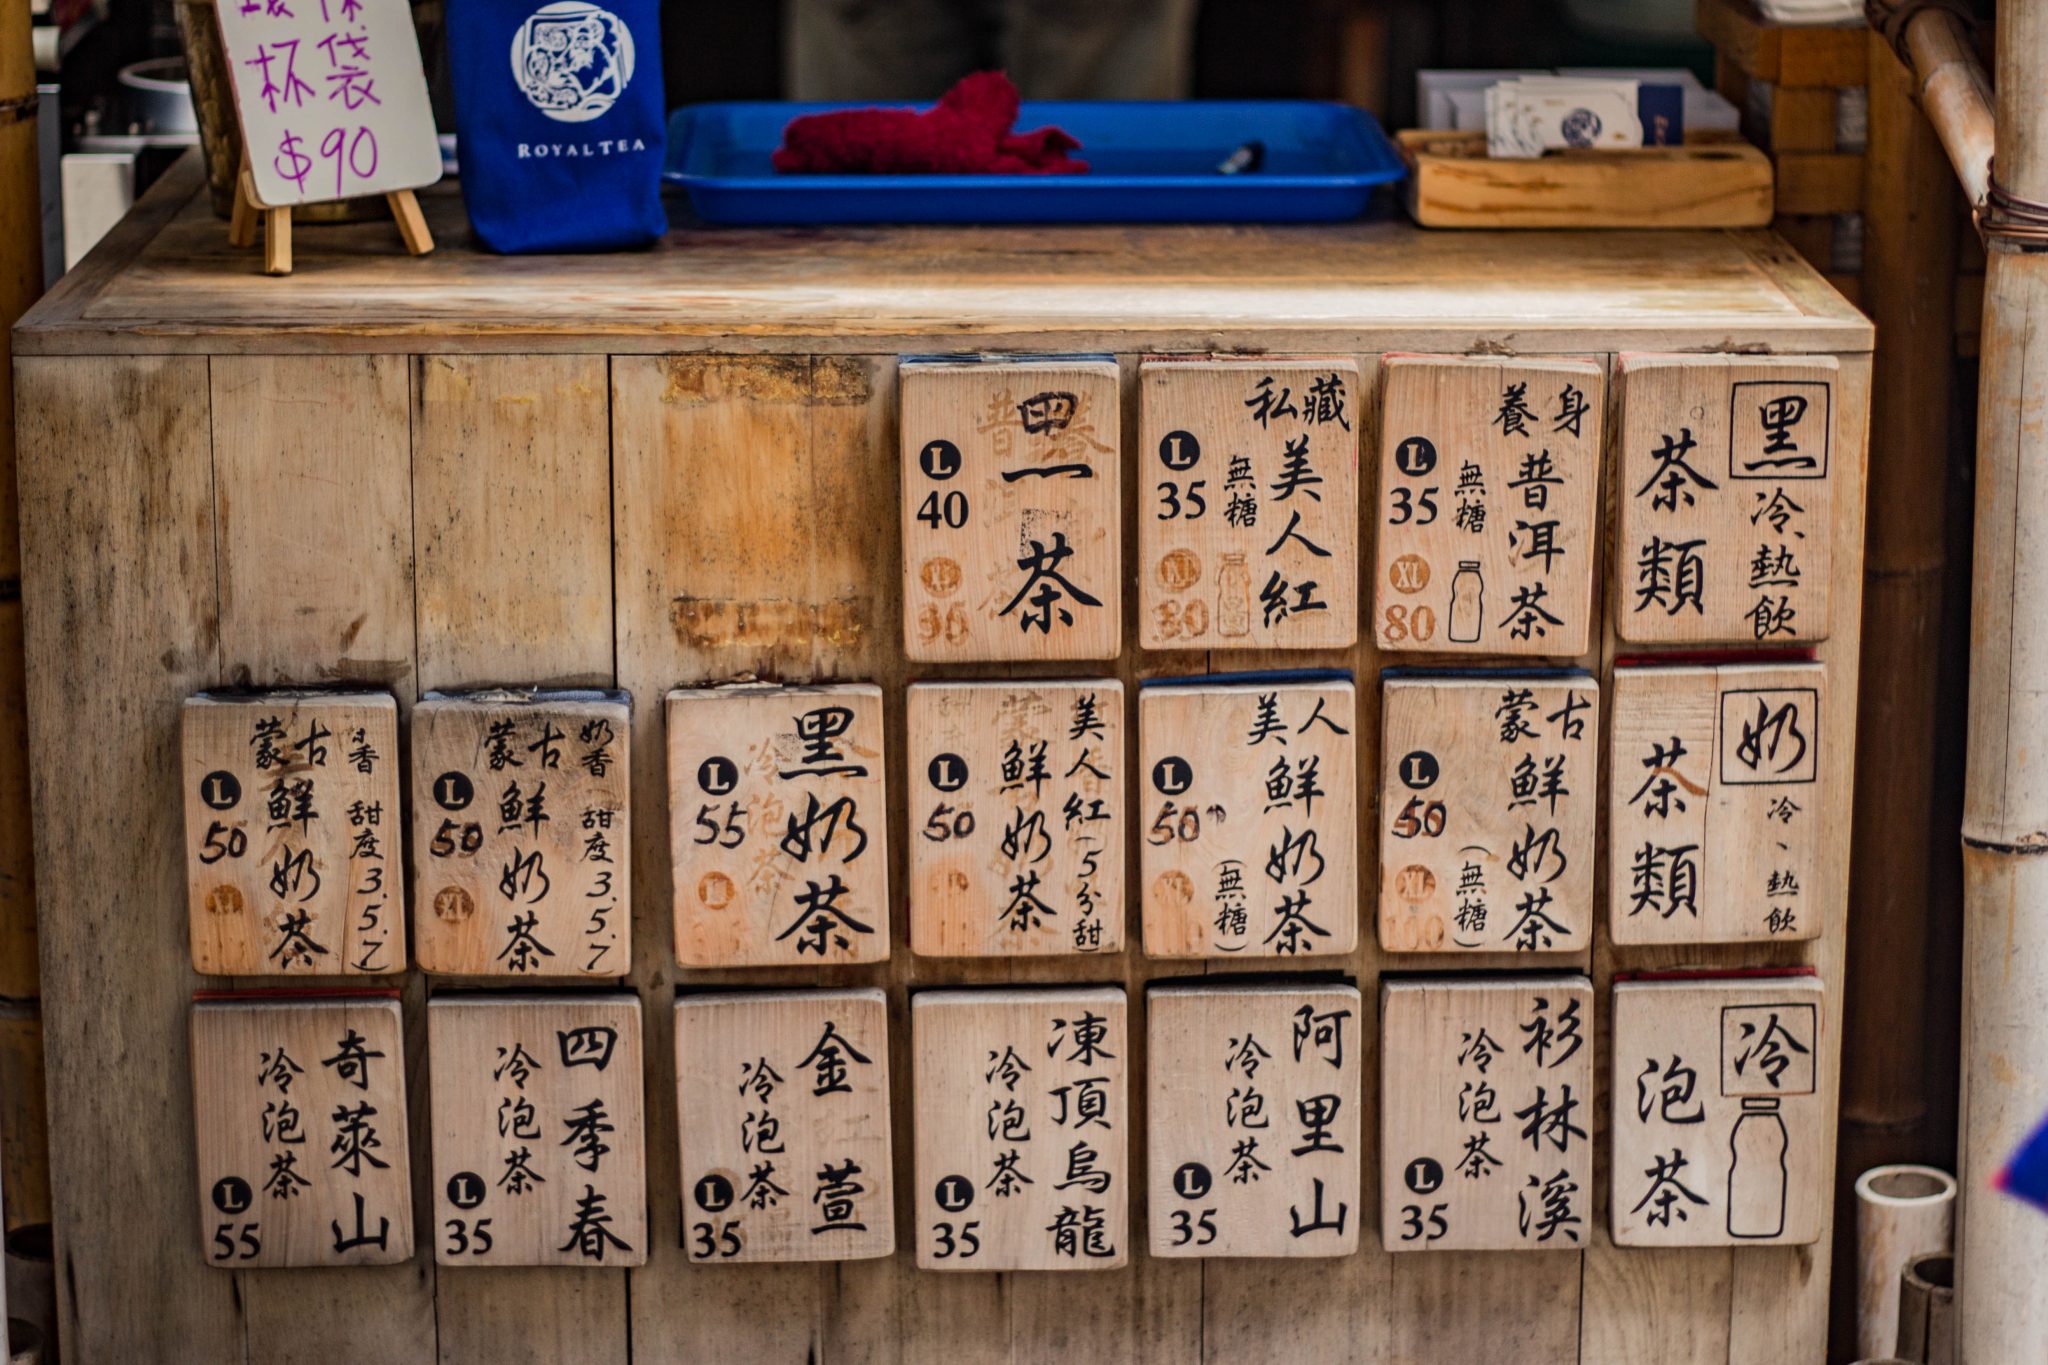 環保
杯袋
$90
ROYAL TEA
黑
茶類
冷、熱飲
養身
普洱茶
無糖
L
35
XL
80
私藏
美人紅
無糖
L
35
XL
80
黑茶
L
40
XL
奶
茶類
冷、熱飲
蒙古
鮮奶茶
(無糖)
L
50
XL
100
美人
鮮奶茶
(無糖)
L
50
美人紅(5分甜)
鮮奶茶
L
50
黑奶茶
L
55
奶香(甜度3.5.7)
蒙古
鮮奶茶
L
50
XL
香 甜度3.5.7)
蒙古
鮮奶茶
L
50
冷
泡茶
衫林溪
冷泡茶
L
35
阿里山
冷泡茶
L
35
凍頂烏龍
冷泡茶
L
35
金萱
冷泡茶
L
35
四季春
冷泡茶
L
35
奇萊山
冷泡茶
L
55